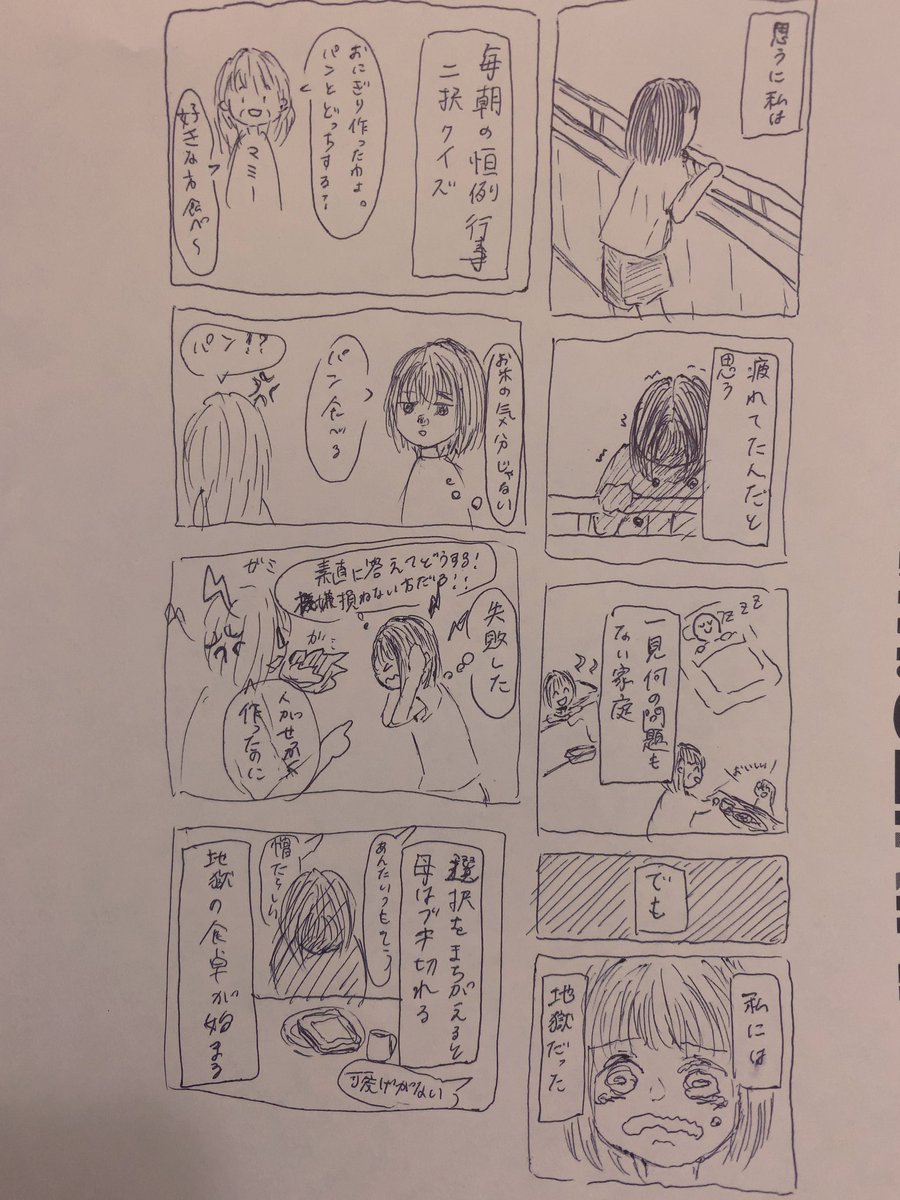 思うに私は
疲れてたんだと
思う
zzz
一見何の問題も
ない家庭
おいしい!
でも
私には
地獄だった
毎朝の恒例行事
二択クイズ
おにぎり作ったわよ。
パンとどっちする?
マミー
好きな方食べ〜
お米の気分じゃない
パン食べる
パン!?
失敗した
素直に答えてどうする!
機嫌損ねない方だろ!!
ガミ
ガミ
人がせっかく
作ったのに
選択をまちがえると
母はブチ切れる
あんたいつもそう
憎たらしい
可愛げがない
地獄の食卓が始まる